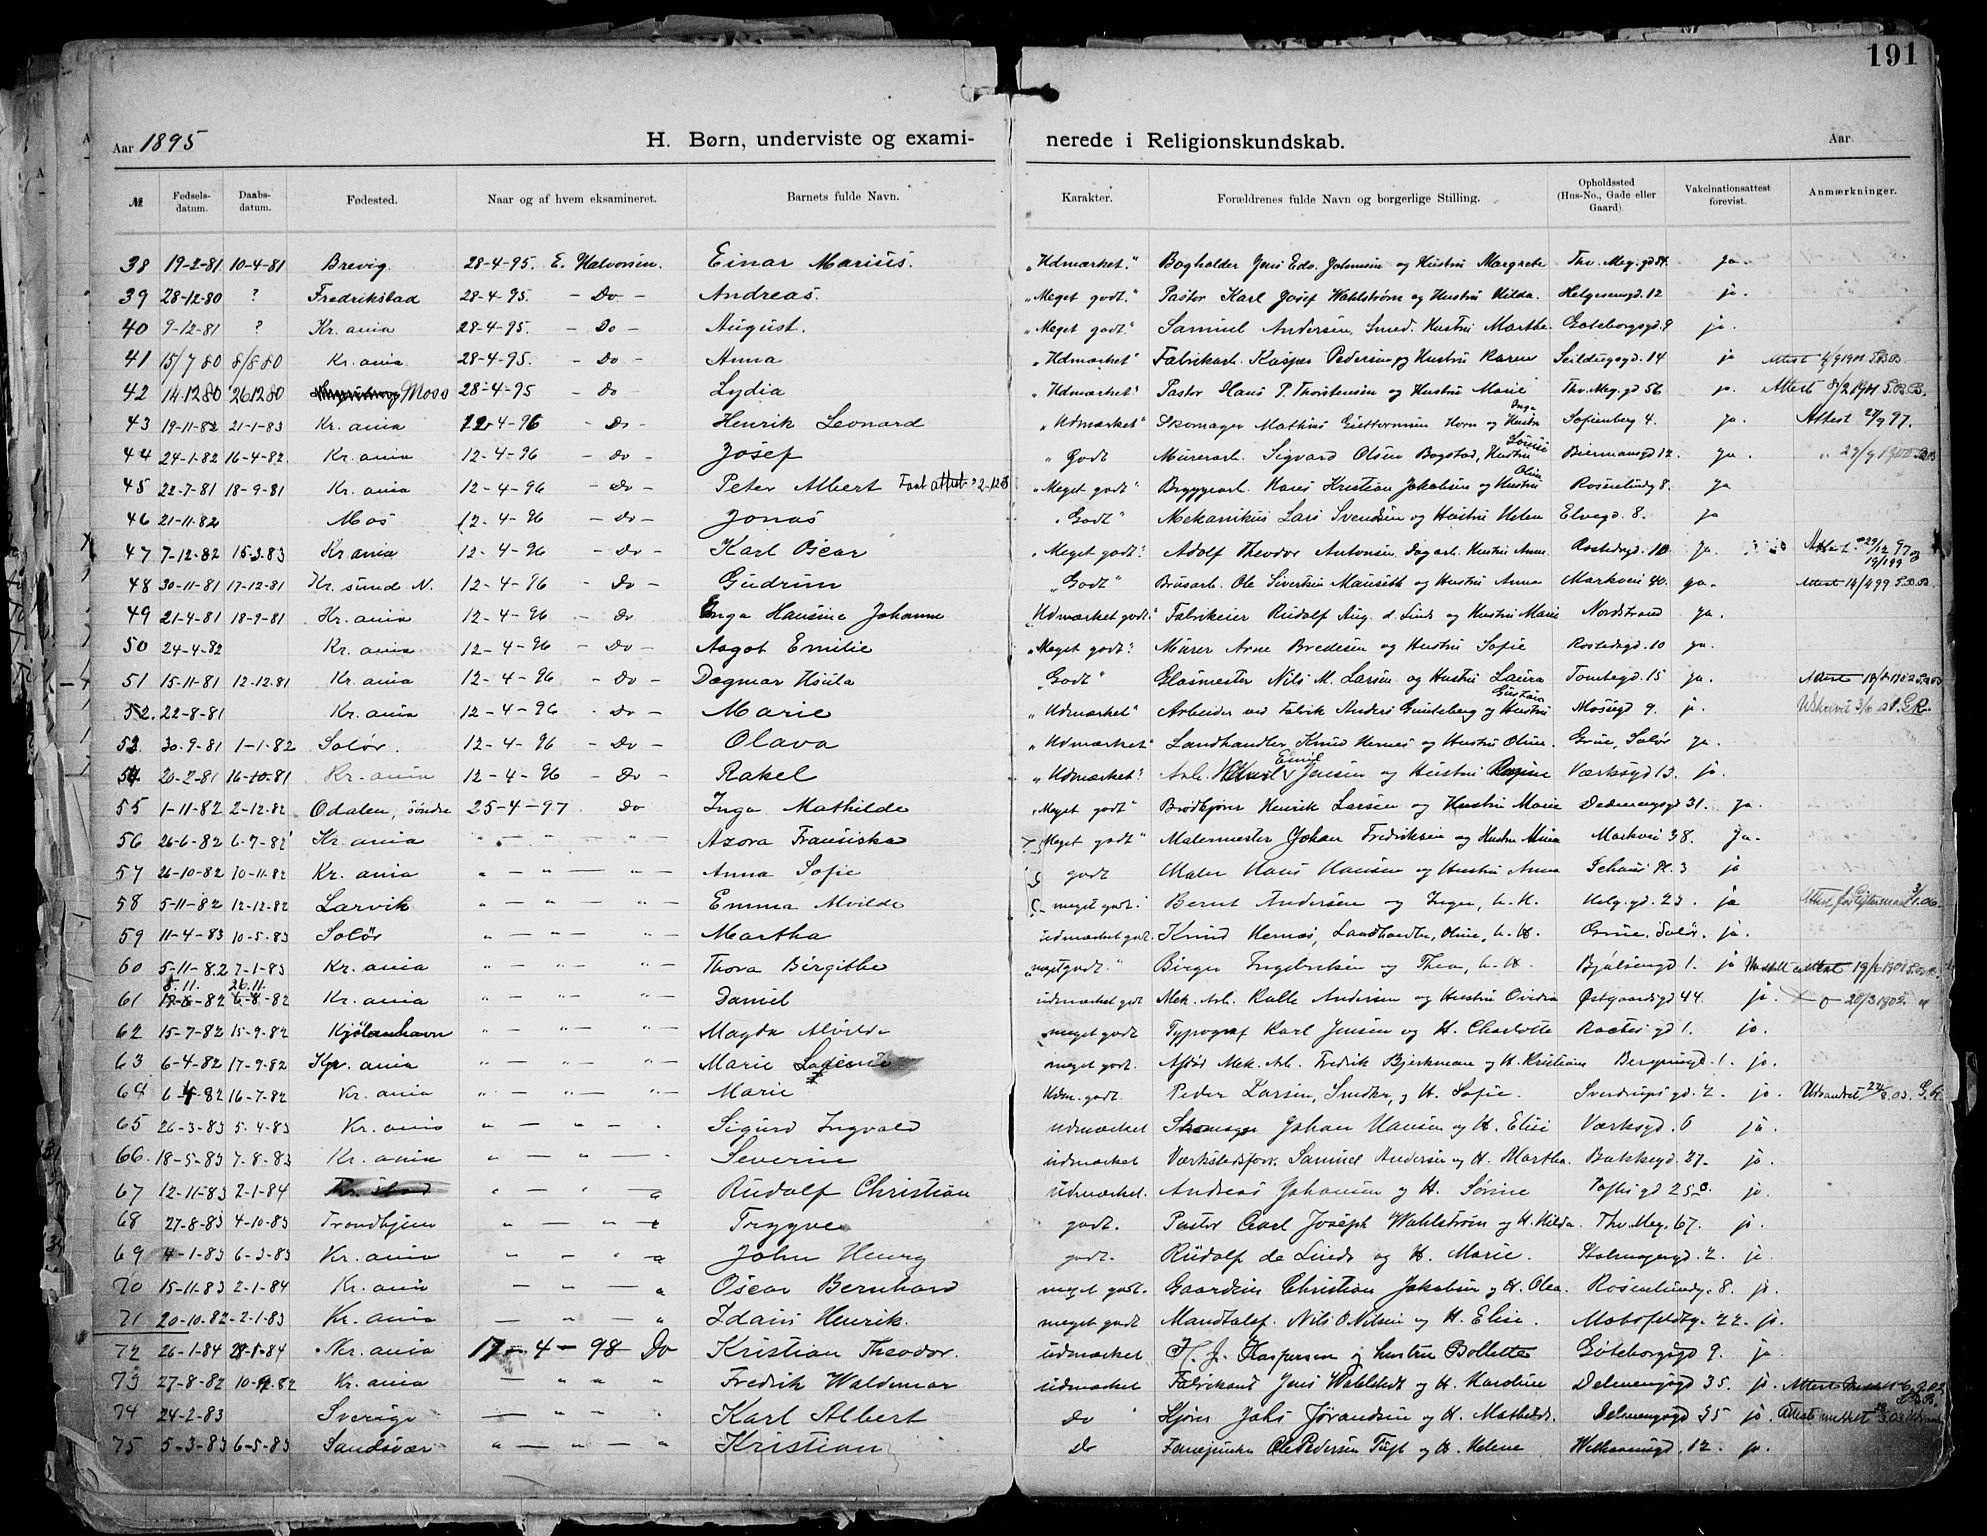 191
Aar 1895 H. Børn, underviste og exami- nerede i Religionskundskab. Aar
№ Fødsels-datum. Daabs-datum. Fødested. Naar og af hvem eksamineret. Barnets fulde Navn. Karakter. Forældrenes fulde Navn og borgerlige Stilling. Opholdssted (Hus-No., Gade eller Gaard). Vakcinationsattest forevist. Anmærkninger.
38 19-2-81 10-4-81 Brevig. 28-4-95. E. Halvorsen. Einar Marius. "Udmærket." Bogholder Jens Edv. Johnsen og Hustru Margrete Thv. Meg. gd ja
39 28-12-80 ? Fredrikstad 28-4-95. - Do - Andreas. "Meget godt." Pastor Karl Josef Wahlstrøm og Hustru Hilda. Helgesensgd. 12 ja.
40 9-12-81 ? Kr. ania 28-4-95. - Do - August. "Meget godt" Samuel Andersen, Smed. Hustru Marthe. Gøteborgsgd. 9 ja.
41 15/7 80 8/8 80 Kr. ania 28-4-95. - Do - Anna "Udmærket" Fabrikarb. Kasper Pedersen og Hustru Karen Seildugsgd. 14 ja Attest
42 14.12 80 26.12 80 Moss 28-4-95 - Do - Lydia "Udmærket" Pastor Hans P. Thorstensen og Hustru Marie Thv. Meg. gd 56 ja. Attest
43 19-11-82 21-1-83 Kr. ania 12-4-96 - Do - Henrik Leonard "Udmærket" Skomager Mathius Horn og Hustru Inga Sofienberg 4. ja. Attest 27/9 97.
44 24-1-82 16-4-82. Kr. ania 12-4-96 - Do - Josef "Godt Murerarb. Sigvard Olsen Bogstad, Hustru Lovise Biermansgd 12. ja.
45 22-7-81 18-9-81 Kr. ania 12-4-96 - Do - Peter Albert "Meget godt" Bryggearb. Hans Kristian Jakobsen og Hustru Olea Rosenlundg 8. ja
46 21-11-82 Mos 12-4-96 - Do - Jonas "Godt" Mekanikus Lars Svendsen og Hustru Helen Elvegd. 8. ja
47 7-12-82 15-3-83 Kr. ania 12-4-96 - Do - Karl Oscar "Meget godt" Adolf Theodor Antonsen, Dagarb. Hustru Anne Rostedsgd. 10 ja.
48 30-11-81 17-12-81 Kr. sund N. 12-4-96 - Do - Gudrun "Godt" Brusarb. Ole Sivertsen Mauseth og Hustru Anna Markvei 40. ja. Attest 14/4 99
49 21-4-81 18-9-81 Kr. ania 12-4-96 - Do Inga Hansine Johanne "Udmærket godt" Fabrikeier Rudolf Aug. d. Linde og Hustru Marie Nordstrand ja.
50 24-4-82 Kr. ania 12-4-96 - Do - Aagot Emilie "Meget godt" Murer Arne Bredesen og Hustru Sofie Rostedsgd. 10 ja.
51 15-11-81 12-12-81 Kr. ania 12-4-96 - Do - Dagmar Hsula "Godt" Glasmester Nils M. Larsen og Hustru Laura Tomtegd. 15 ja. Attest
52. 22-8-81 Kr. ania 12-4-96 - Do - Marie "Udmærket" Arbeider ved Fabrik Anders og Hustru Gustava Mosegd 9. ja.
53. 30-9-81 1-1-82 Solør. 12-4-96 - Do - Olava "Udmærket" Landhandler Knud Hernes og Hustru Oline. Grue, Solør ja.
54 20-2-81 16-10-81 Kr. ania 12-4-96 - Do - Rakel "Udmærket" Arb. Emil Jensen og Hustru Regine Værksgd 13. ja.
55 1-11-82 2-12-82 Odalen, søndre 25-4-97 Do Inga Mathilde "Meget godt" Brødkjører Henrik Larsen og Hustru Marie 31. ja.
56 26-6-82 6-7-82 Kr. ania " — " — " — " Azora Fransiska Meget godt" Malermester Johan Fredriksen og Hustru Mina Markvei 38. Ja.
57 26-10-82 10-11-82 Kr. ania " — " — " — " Anna Sofie godt Maler Hans Hansen og Hustru Anna Schous Pl. 3 ja
58 5-11-82 12-12-82 Larvik " — " — " — " Emma Alvilde meget godt. Bernt Andersen og Inger, h. H. Helg. gd. 23. ja Attest
59 11-4-83 10-5-83 Solør " — " — " — " Martha udmærket godt. Knud Hernes, Landhandler, Oline, h. H. Grue. Solør. ja.
60 5-11-82 7-1-83 Kr. ania " — " — " — " Thora Birgithe "meget godt." Birger Ingebretsen og Thea, h. H. Bjølsengd 1. ja
61 8.11. 26.11. 82 Kr. ania " — " — " — " Daniel udmærket godt Mek. Arb. Kalle Andersen og Hustru Ovidia Østgaardsgd 44. ja.
62 15-7-82 15-9-82 Kjøbenhavn " — " — " — " Magda Alvilda meget godt Typograf Karl Jensen og H. Charlotte gd 1. ja.
63 6-4-82 17-9-82 Kr. ania " — " — " — " Marie meget godt. Afdød Mek. Arb. Fredrik Bjerkman og H. Kristiane 1. ja.
64 6-4-82 16-7-82 Kr. ania " — " — " — " Marie Udm. godt. Peder Larsen, Snedker, og H. Sofie. Sverdrups gd. 2. ja.
65 26-3-83 5-4-83 Kr. ania " — " — " Sigurd Ingvald udmærket Skomager Johan Hansen og H. Elise Værksgd. 6 ja.
66. 18-5-83 7-8-83 Kr. ania " — " — " Severin udmærket Værkstedsforv. Samuel Andersen og H. Martha. Bakkegd. 27- ja.
67 12-11-83 2-1-84 " — " — " Rudolf Christian udmærket. Andreas Johansen og H. Sørine Toftesgd 25 ja.
68 27-8-83 4-10-83 Trondhjem " — " — " Trygve godt. Pastor Carl Joseph Wahlstrøm og H. Hilda. Thv. Meg. 67. ja.
69 4-1-83 6-3-83 Kr. ania " — " — " John Henry godt. Rudolf de Linde og H. Marie. gd. 2. ja.
70 15-11-83 2-1-84 Kr. ania — " — " Oscar Bernhard meget godt. Christian Jakobsen og H. Olea. Rosenlundg. 8. ja.
71 20-10-82 2-1-83 Kr. ania — " — " Henrik. meget godt Nils O Nilsen og H. Elise. 22. ja.
72 26-1-84 28-1-84 Kr. ania 17-4-98 Do Kristian Theodor. udmærket H. J. Kaspersen og hustru Bollette Gøteborgsgd 9. ja
73 27-8-82 82 Kr. ania — " " " Fredrik Waldemar udmærket Fabrikant Jens Wahlstedt og H. Karoline Delenengsgd 35. ja. Attest
74 24-2-83 Sverige — " — " Karl Albert do Jørandsen og H. Delenengsgd 35 ja.
75 5-3-83 6-5-83 Sandsvær " — " — " Kristian do Ole Pedersen Tuft og H. Helene 12. ja.